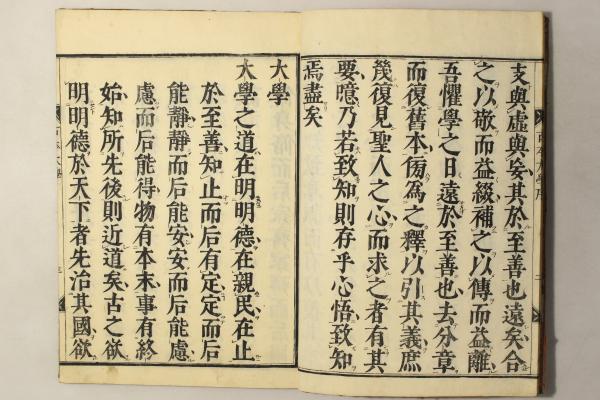 支與虛與妄其於至善也遠矣合
之以敬而益綴補之以傳而益離
吾懼學之日遠於至善也去分章
而復舊本傍為之釋以引其義庶
幾復見聖人之心而求之者有其
要噫乃若致知則存乎心悟致知
焉盡矣
大學
大學之道在明明德在親民在止
於至善知止而后有定定而后
能靜靜而后能安安而后能慮
慮而后能得物有本末事有終
始知所先後則近道矣古之欲
明明德於天下者先治其國欲